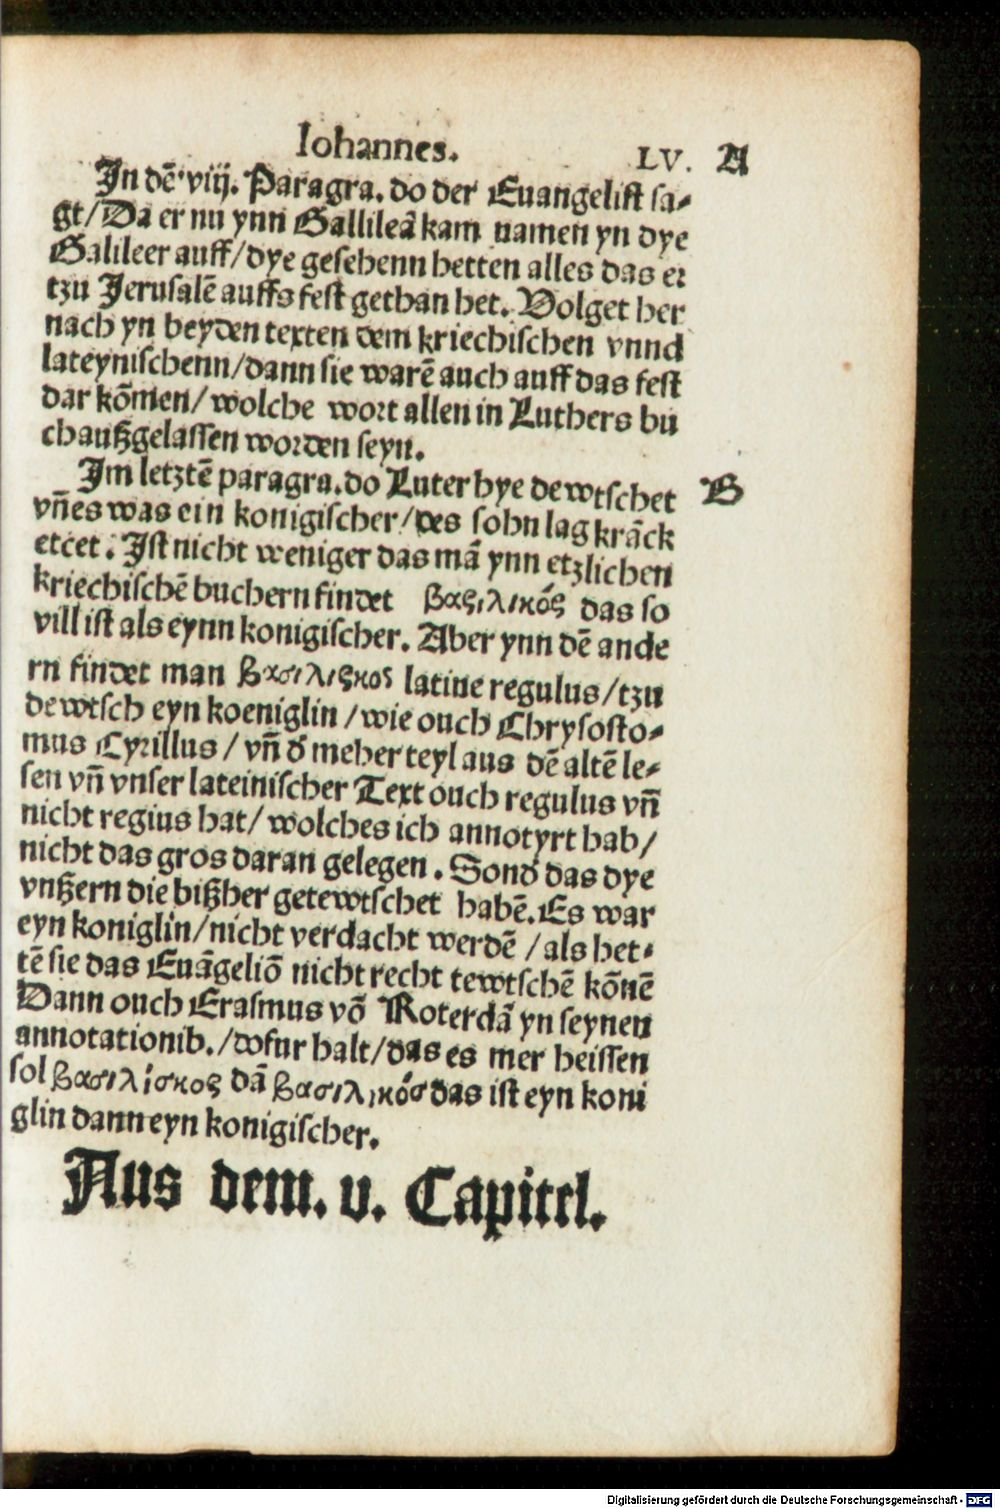 Iohannes. LV. A
In dē viij. Paragra. do der Euangelist sa-
gt/Da er nu ynn Gallileā kam namen yn dye
Galileer auff/dye gesehenn hetten alles das er
tzu Jerusalē auffs fest gethan het. Volget her
nach yn beyden texten dem kriechischen vnnd
lateynischenn/dann sie warē auch auff das fest
dar kōmen/wolche wort allen in Luthers bu
ch außgelassen worden seyn.
Im letztē paragra.do Luter hye dewtschet B
vn̄ es was ein konigischer/des sohn lag krāck
etcet. Ist nicht weniger das mā ynn etzlichen
kriechischē buchern findet βαςιλικός das so
vill ist als eynn konigischer. Aber ynn dē ande
rn findet man βασιλιςκος latine regulus/tzu
dewtsch eyn koeniglin/wie ouch Chrysosto-
mus Cyrillus/vn̄ d̓ meher teyl aus dē altē le-
sen vn̄ vnser lateinischer Text ouch regulus vn̄
nicht regius hat/wolches ich annotyrt hab/
nicht das gros daran gelegen. Sond̓ das dye
vnßern die bißher getewtschet habē. Es war
eyn koniglin/nicht verdacht werdē/als het-
tē sie das Euāgeliō nicht recht tewtschē kōnē
Dann ouch Erasmus vō Roterdā yn seynen
annotationib./dofur halt/das es mer heissen
sol βασιλίσκος dā βασιλικός das ist eyn koni
glin dann eyn konigischer.
Aus dem. v. Capitel.
Digitalisierung gefördert durch die Deutsche Forschungsgemeinschaft - DFG